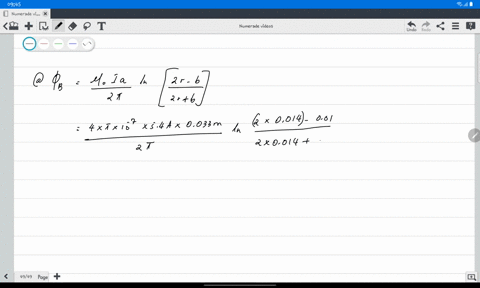 09:05
Numerade vi... ×
Numerade videos
Undo Redo
@ ϕ_B = μ₀ I a / 2π ln [ 2r - b / 2r + b ]
= 4 × π × 10⁻⁷ × 5.4A × 0.033m / 2π ln (2 × 0.014) - 0.01 / 2 × 0.014 +
49/49 Page +